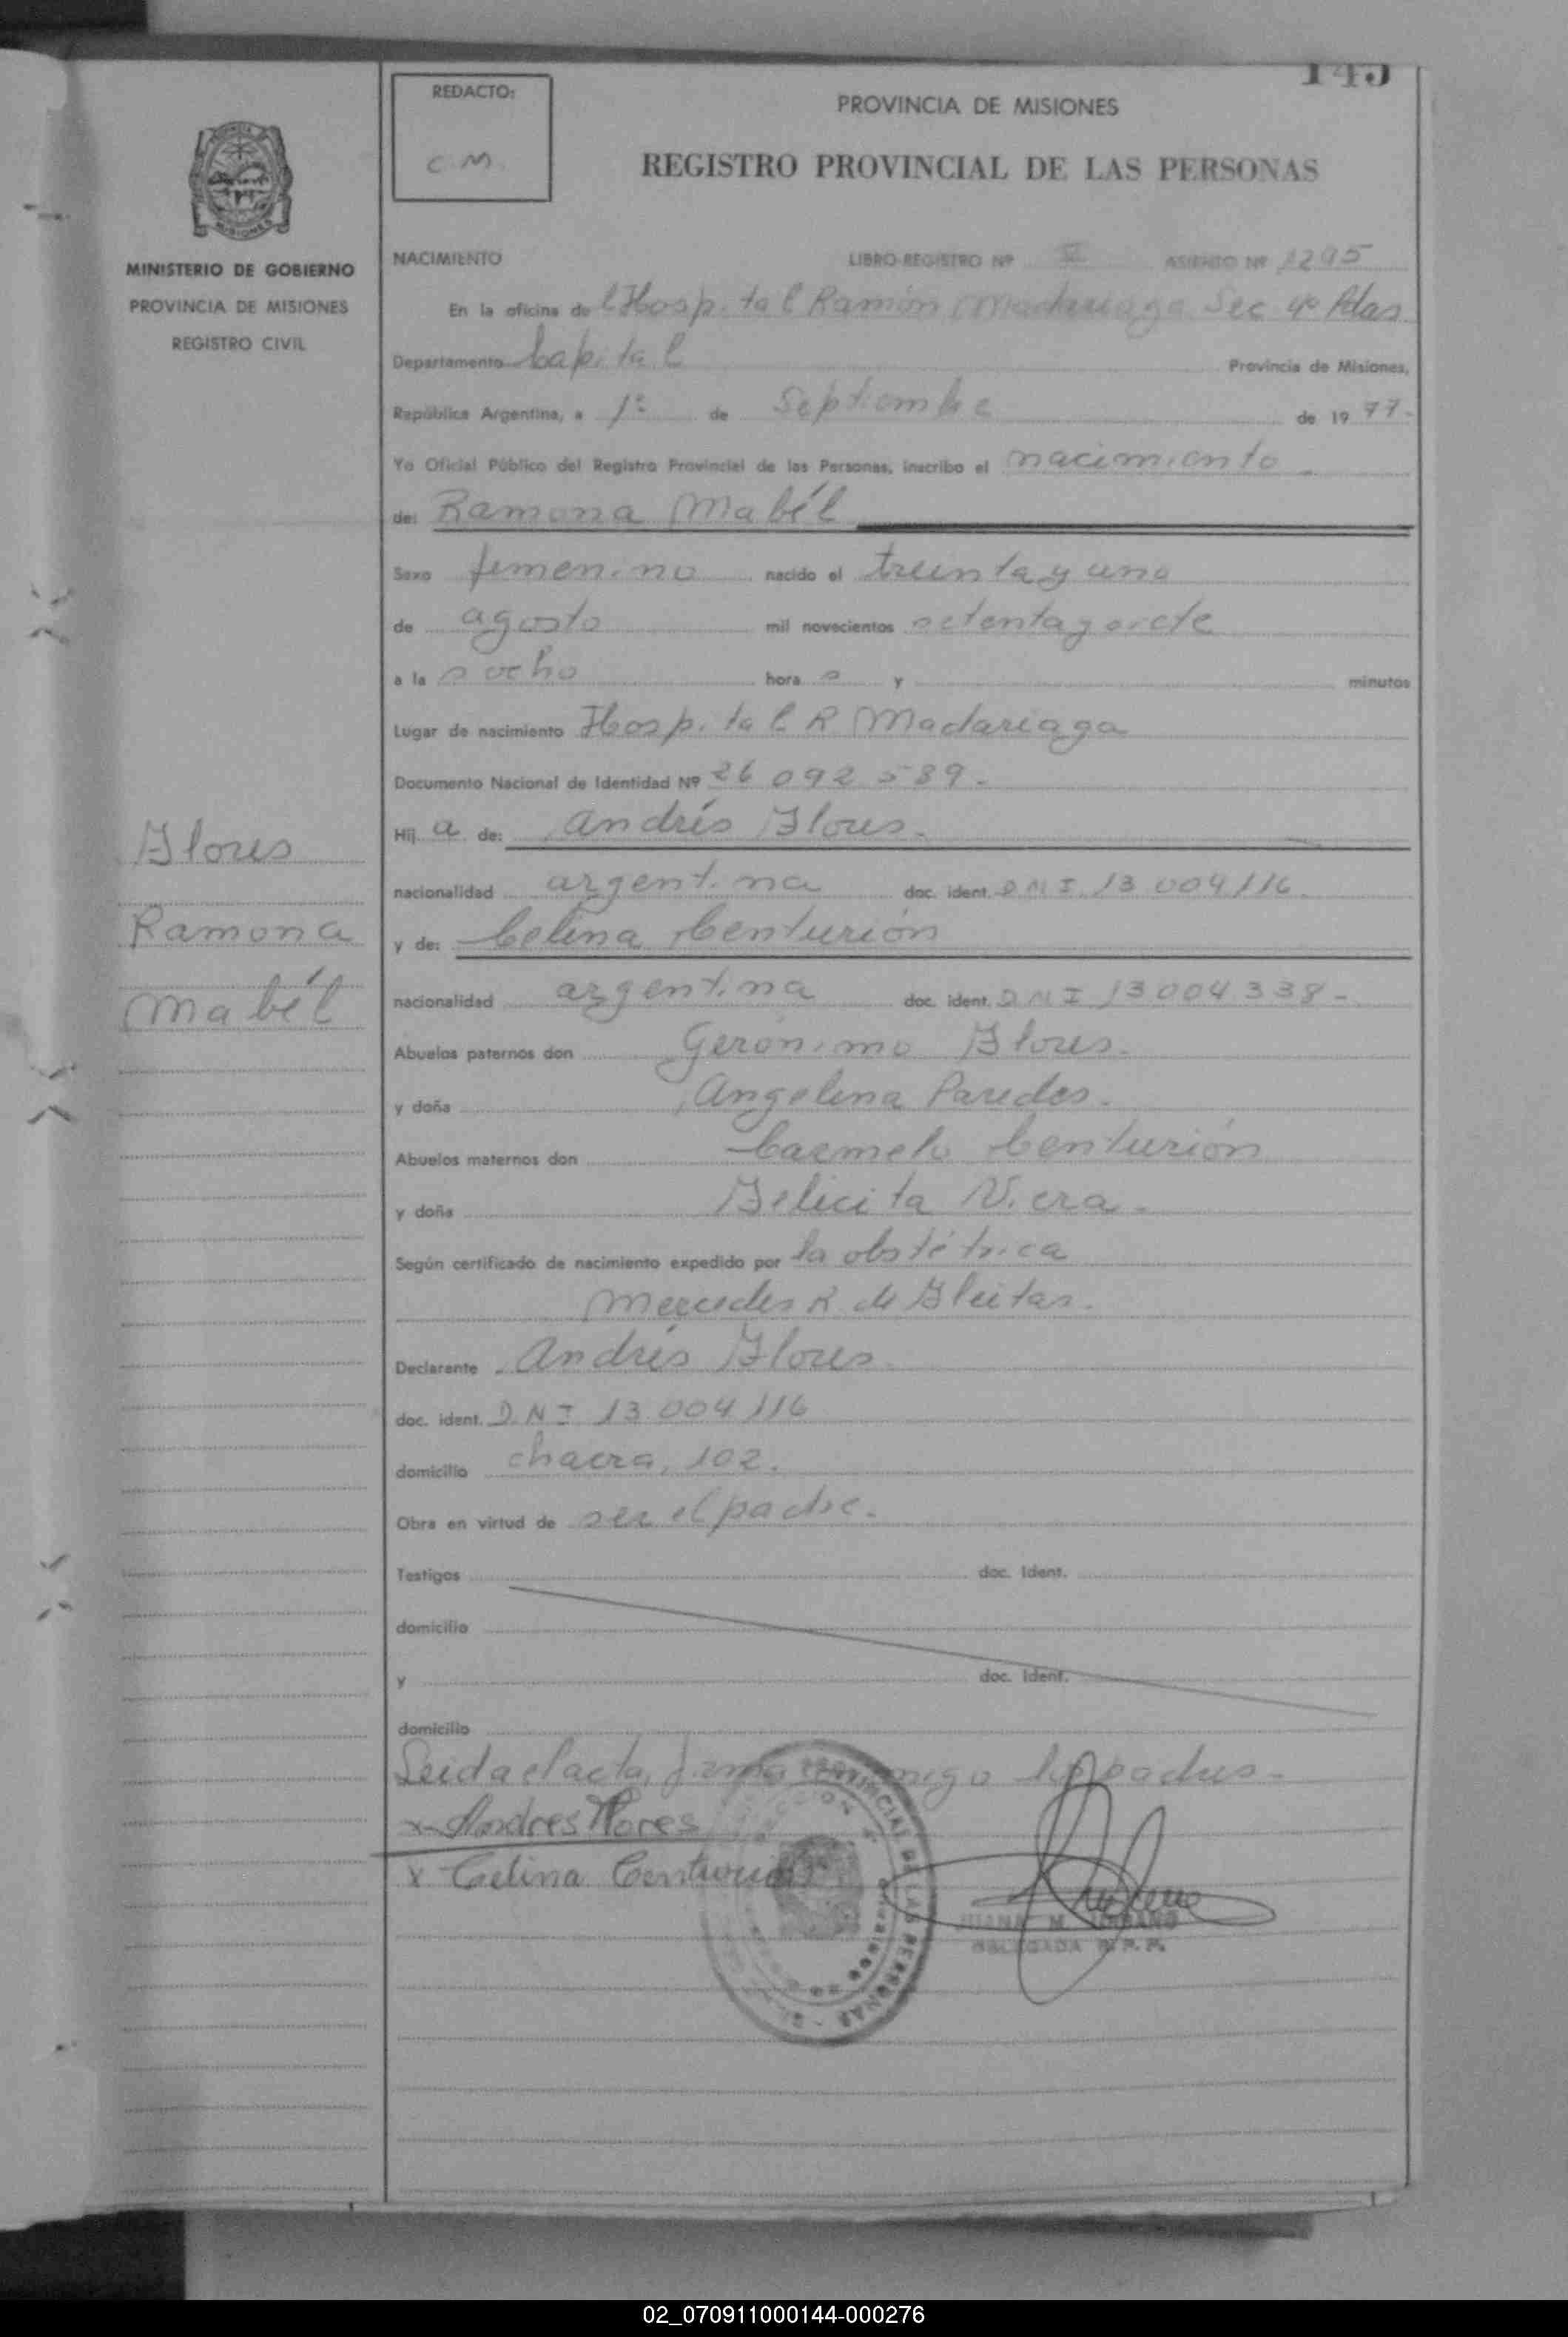 145
REDACTO:
C.M.
PROVINCIA DE MISIONES
REGISTRO PROVINCIAL DE LAS PERSONAS
MINISTERIO DE GOBIERNO
PROVINCIA DE MISIONES
REGISTRO CIVIL
NACIMIENTO LIBRO-REGISTRO Nº ASIENTO Nº 1295
En la oficina del Hospital Ramón Madariaga Sec 4º Pdas
Departamento Capital Provincia de Misiones,
República Argentina, a 1º de Septiembre de 1977.
Yo Oficial Público del Registro Provincial de las Personas, inscribo el nacimiento
de: Ramona Mabél
Sexo femenino nacido el treinta y uno
de agosto mil novecientos setenta y siete
a la s ocho hora s y minutos
Lugar de nacimiento Hospital R Madariaga
Documento Nacional de Identidad Nº 26 092 589.
Hij a de: Andrés Flores.
nacionalidad argentina doc. ident. DNI 13 004 116.
y de: Celina Centurión
nacionalidad argentina doc. ident. DNI 13 004 338-
Abuelos paternos don Gerónimo Flores.
y doña Angelina Paredes.
Abuelos maternos don Carmelo Centurión
y doña Felicita Viera.
Según certificado de nacimiento expedido por la obstétrica
Mercedes R. de Fleitas.
Declarante Andrés Flores.
doc. ident. DNI 13.004 116
domicilio chacra, 102.
Obra en virtud de ser el padre.
Testigos doc. Ident.
domicilio
y doc. Ident.
domicilio
Leida el acta, firma conmigo los padres-
x Andres Flores
x Celina Centurion
PROVINCIAL DE LAS PERSONAS
DELEGADA R. P. P.
Flores
Ramona
Mabél
02_070911000144-000276